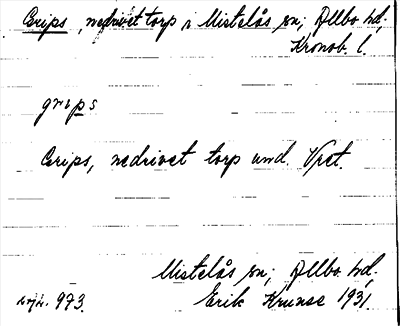 Grips, nedrivet torp i Mistelås sn; Allbo hd,
Kronob. l.
grips
Grips, nedrivet torp und. Vret.
Mistelås sn; Allbo hd.
973. Erik Krunse 1931